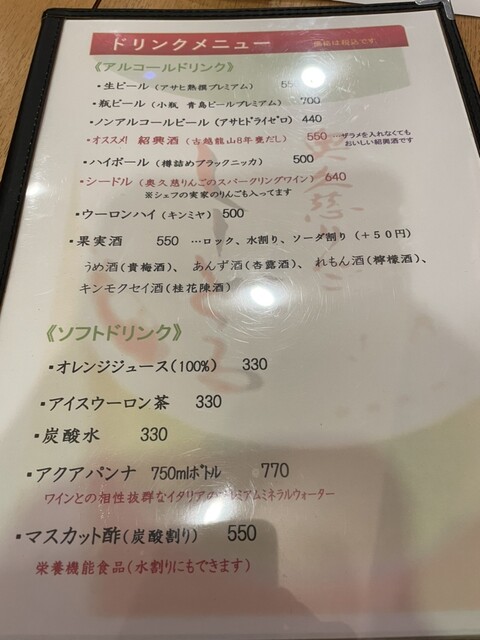 ドリンクメニュー 価格は税込です。
《アルコールドリンク》
・生ビール（アサヒ熟撰プレミアム）
・瓶ビール（小瓶 青島ビールプレミアム） 700
・ノンアルコールビール（アサヒドライゼロ） 440
・オススメ！ 紹興酒（古越龍山8年甕だし） 550 …ザラメを入れなくても
おいしい紹興酒です
・ハイボール（樽詰めブラックニッカ） 500
・シードル（奥久慈りんごのスパークリングワイン） 640
※シェフの実家のりんごも入ってます
・ウーロンハイ（キンミヤ） 500
・果実酒 550 …ロック、水割り、ソーダ割り（＋５０円）
うめ酒（貴梅酒）、 あんず酒（杏露酒）、 れもん酒（檸檬酒）、
キンモクセイ酒（桂花陳酒）
《ソフトドリンク》
・オレンジジュース（100%） 330
・アイスウーロン茶 330
・炭酸水 330
・アクアパンナ 750mlボトル 770
ワインとの相性抜群なイタリアのプレミアムミネラルウォーター
・マスカット酢（炭酸割り） 550
栄養機能食品（水割りにもできます）